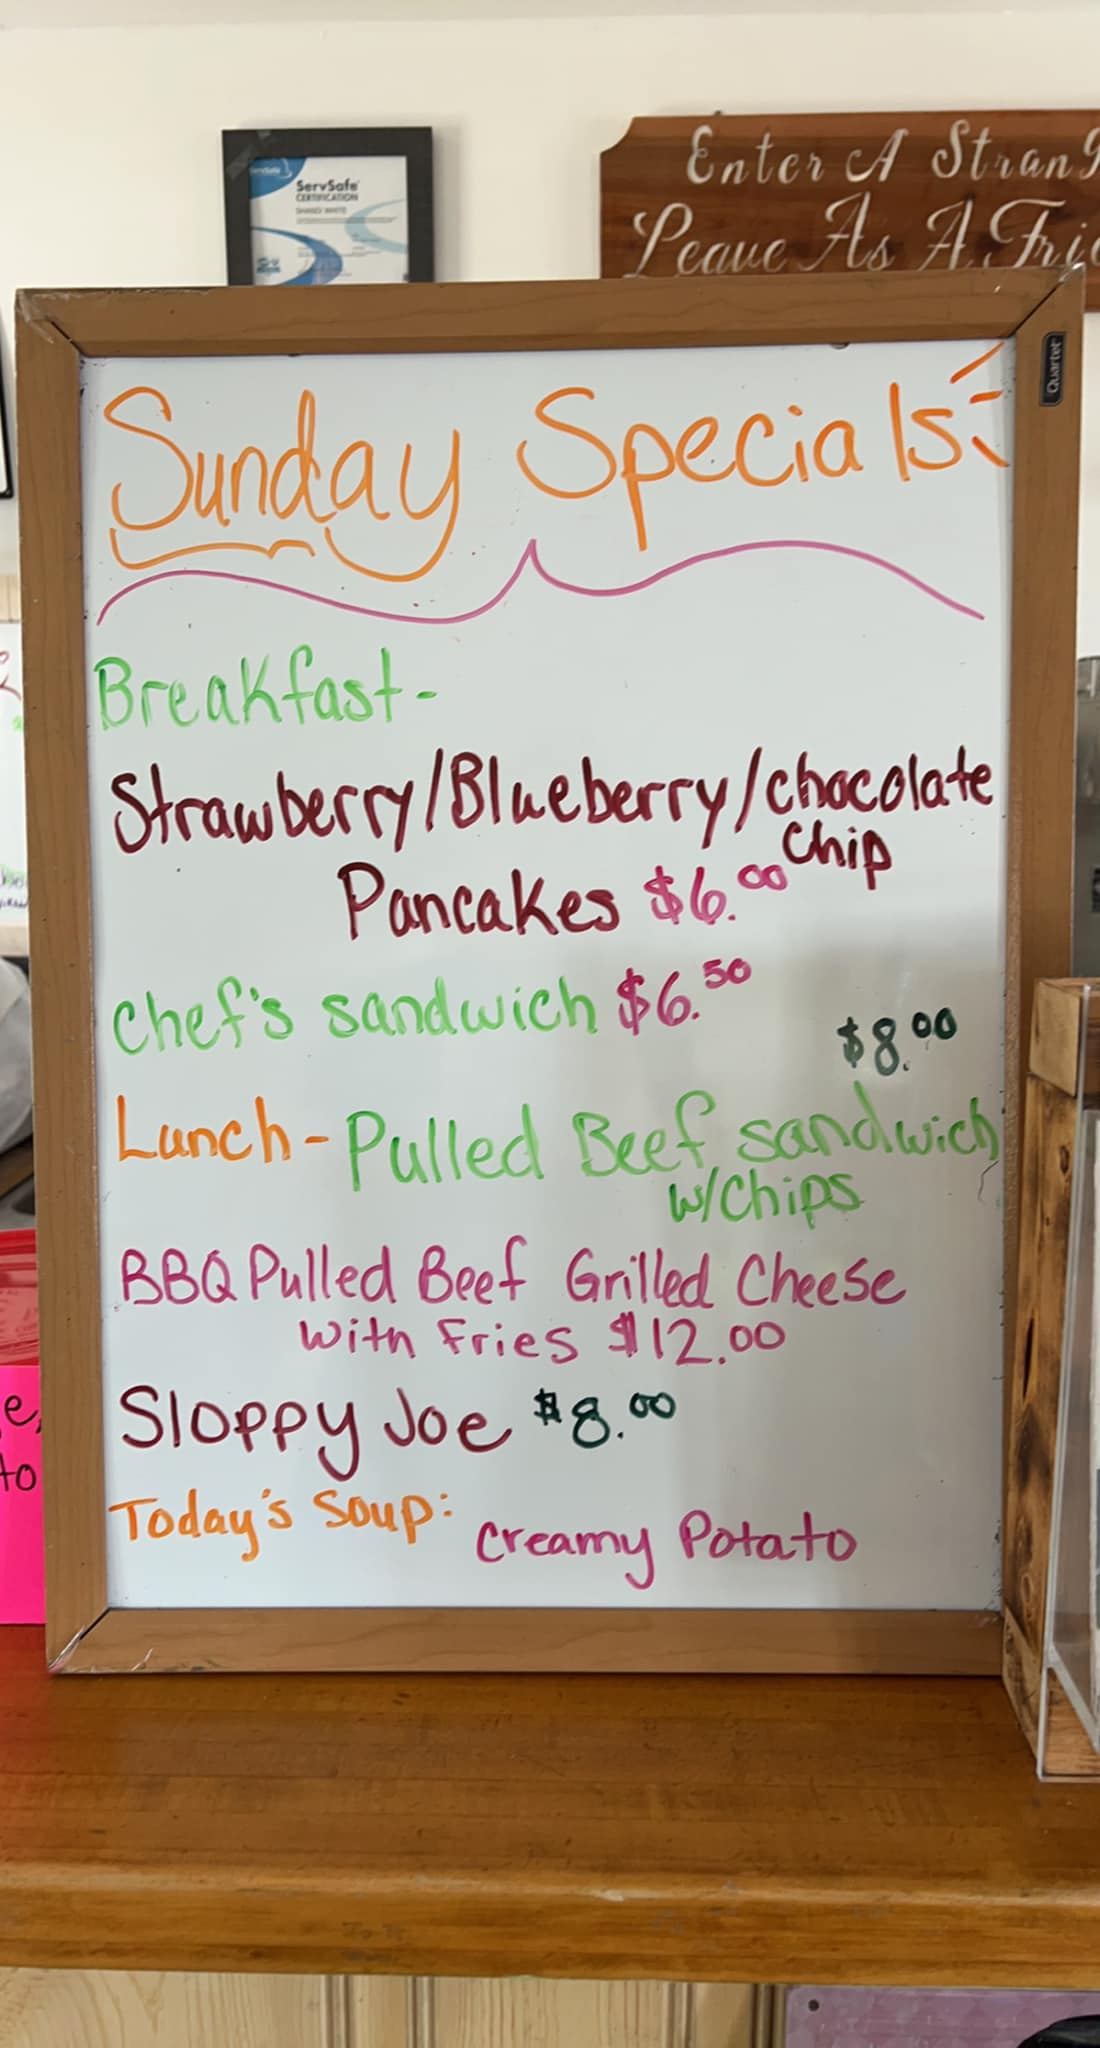 ServSafe
ServSafe
CERTIFICATION
Enter A Strang
Leave As A Frie
Quartet
Sunday Specials
Breakfast-
Strawberry/Blueberry/chocolate
Chip
Pancakes $6.00
Chef's sandwich $6.50
$8.00
Lunch- Pulled Beef sandwich
w/Chips
BBQ Pulled Beef Grilled Cheese
with Fries $12.00
Sloppy Joe $8.00
Today's Soup: Creamy Potato
e,
to